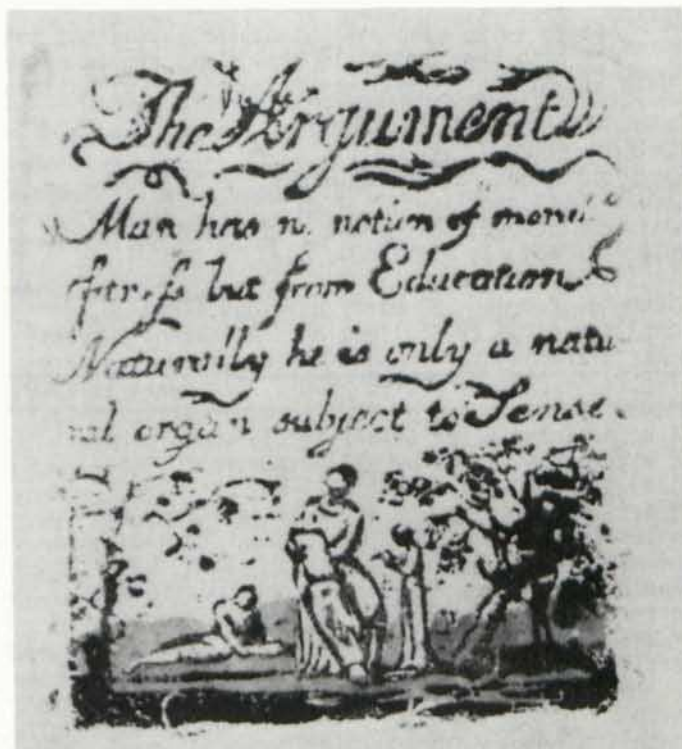 The Argument
Man has no notion of moral
fitneſs but from Education
Naturally he is only a natu
ral organ subject to Sense.